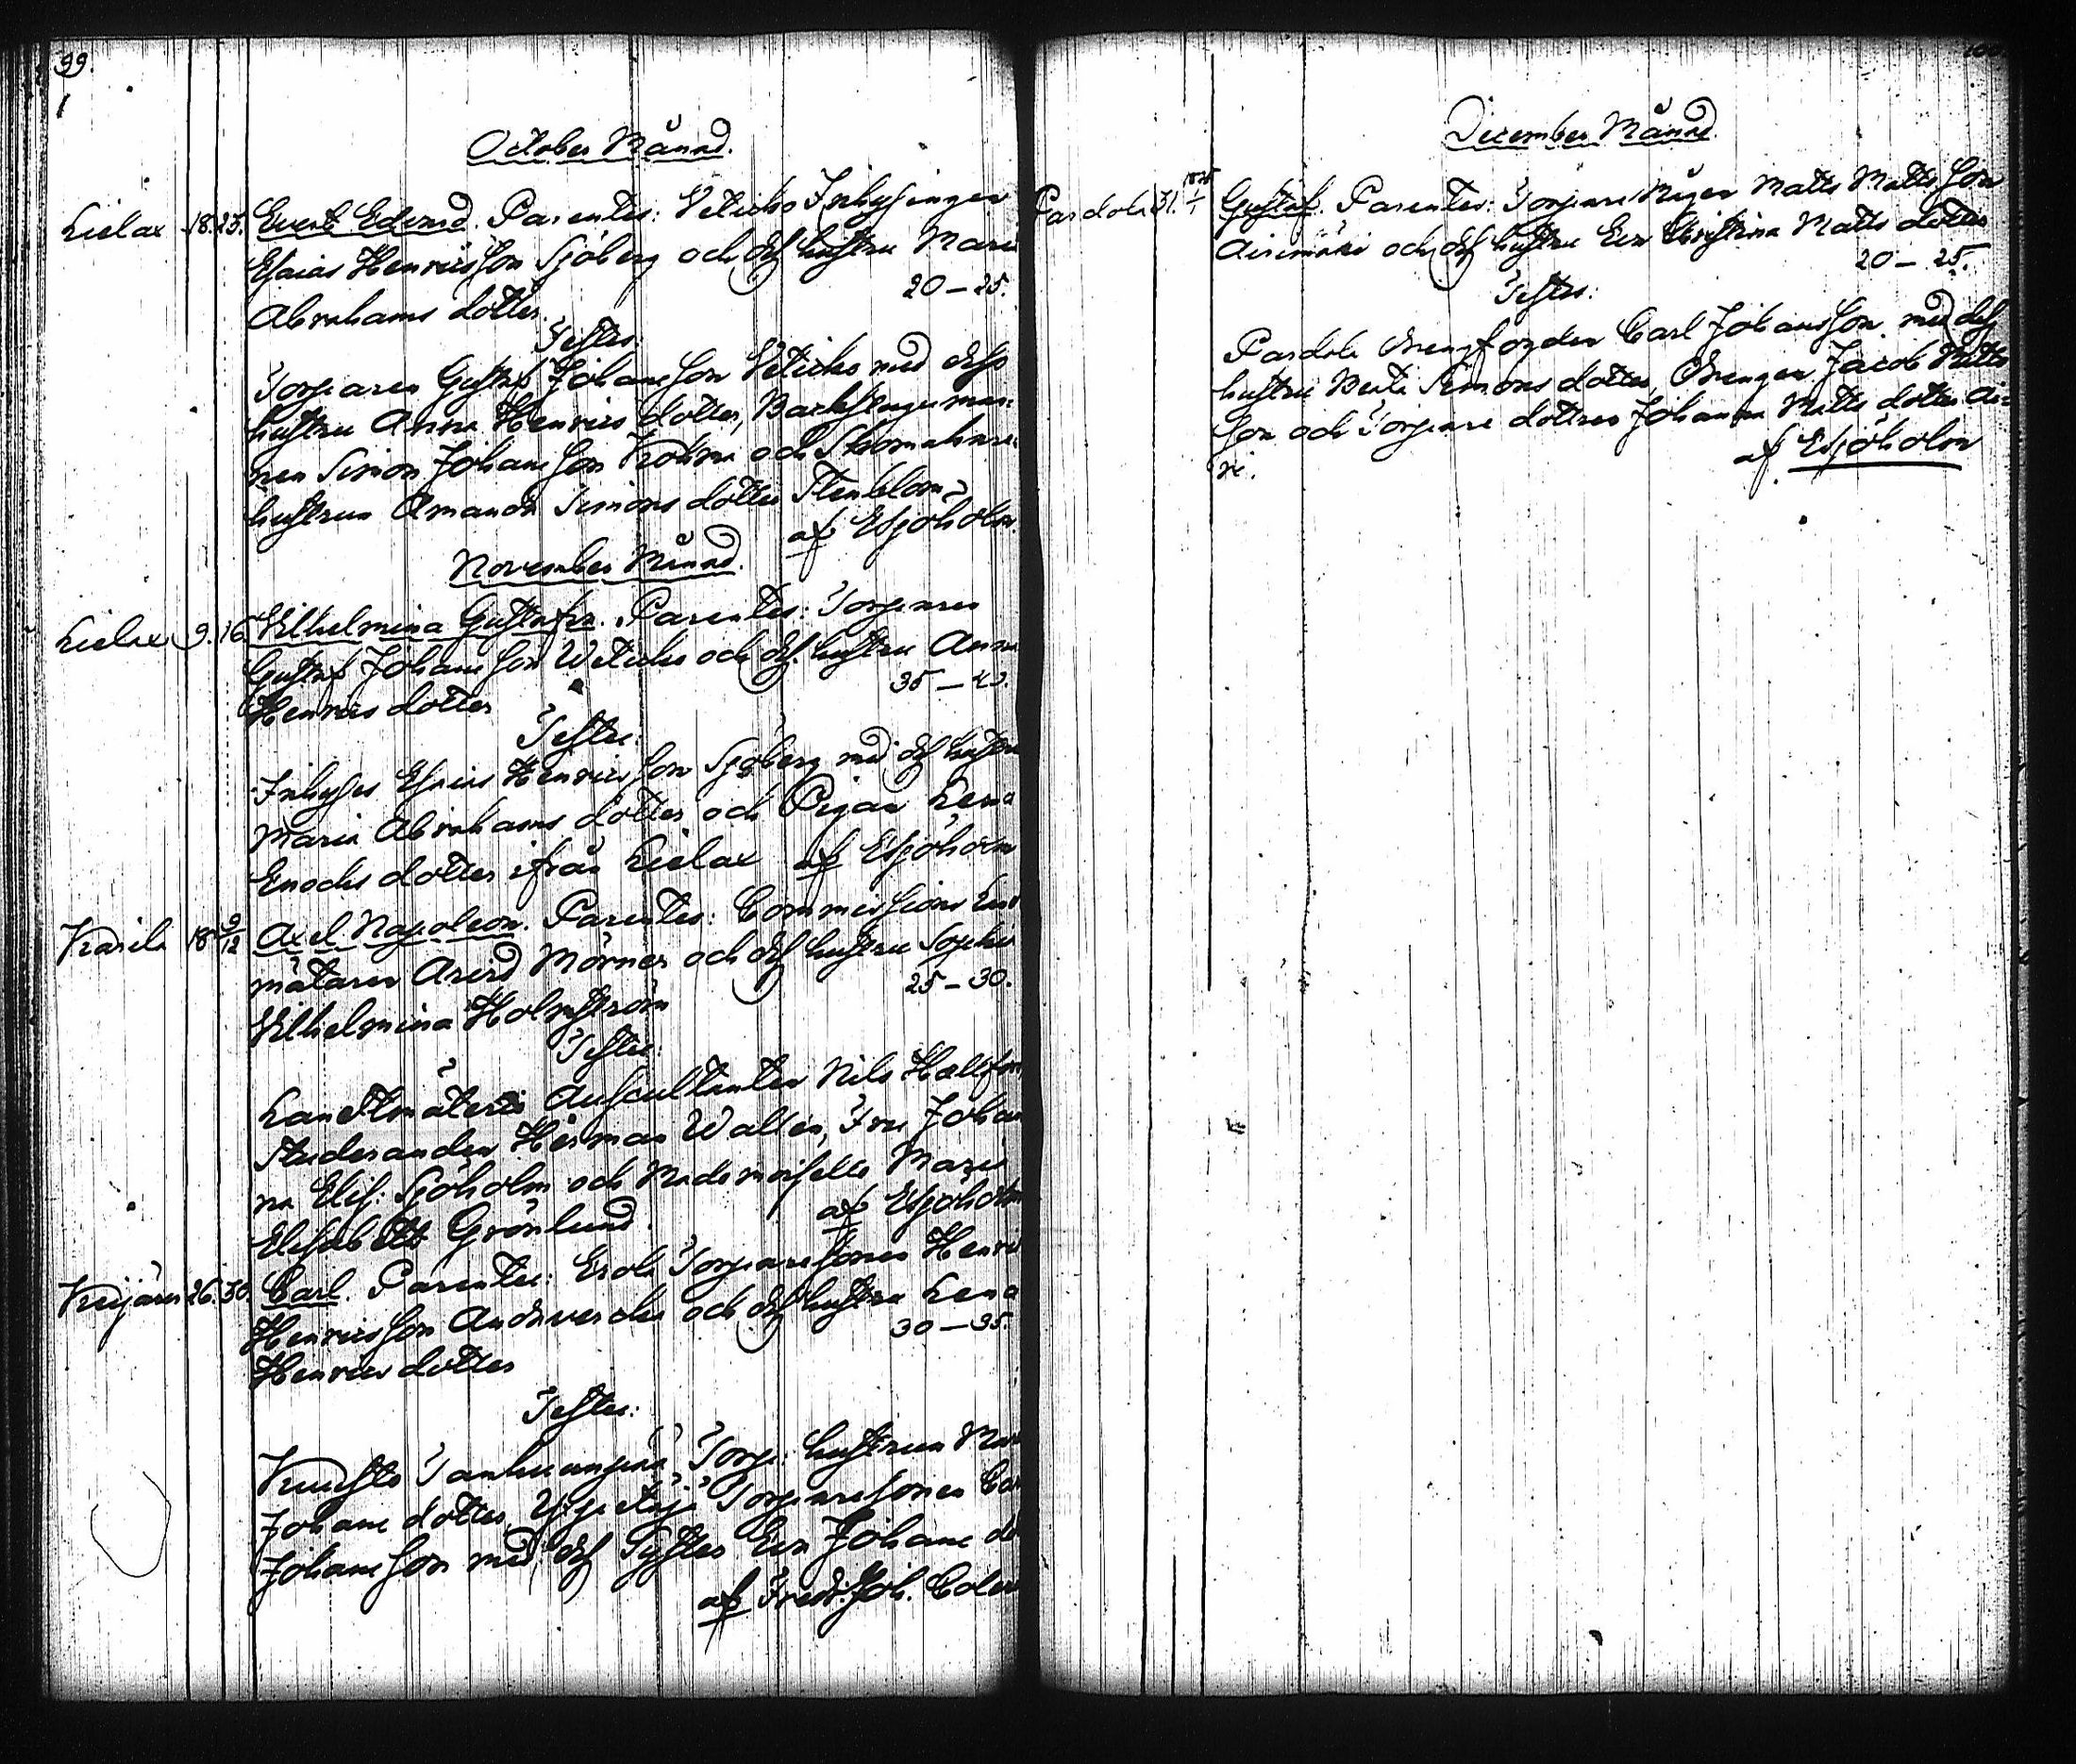 99.
October Månad.
Lielax 18. 23. Evert Edvard. Parentes: Veticko Inhysingen
Esaias Henricsson Sjöberg och dess hustru Maria
Abrahams dotter. 20–25.
Testes:
Torparen Gustaf Johansson Veticko med dess
hustru Anna Henrics dotter,
Simon Johansson och Skomakare
hustrun Amanda Simons dotter Stenblom
af ESjöholm.
November Månad.
Lielax 9. 16. Vilhelmina Gustafva. Parentes: Torparen
Gustaf Johansson Veticko och dess hustru Anna
Henrics dotter 35–40.
Testes:
Inhyses Esaias Henricsson Sjöberg med dess hustru
Maria Abrahams dotter och Pigan Lena
Enochs dotter ifrån Lielax af ESjöholm
Karila 18 9/12 Axel Napoleon. Parentes: Commissions Land
mätaren Arvid Mörner och dess hustru Sophia
Vilhelmina Holmström 25–30.
Testes:
Landtmäteri Auscultanten Nils Hallfors
Studeranden Herman Wallén, Fru Johan
na Elis: Sjöholm och Mademoiselle Maria
Elisabeth Grönlund. af ESjöholm
26. 30. Carl. Parentes: Torparesonen Henric
Henricsson och dess hustru Lena
Henrics dotter 30–35.
Testes:
Torp: hustrun
Johans dotter, Torparesonen
Johansson med dess Syster Eva Johans do
af Fredr. Joh.
100
December Månad
31. 1/1 Gustaf. Parentes: Torpare Mågen Matts Mattsson
Airimäki och dess hustru Eva Christina Matts dotter
20–25.
Testes:
Carl Johansson med dess
hustru Simons dotter, Drengen Jacob Matts
son och Torpare dottren Johanna Matts dotter
af ESjöholm